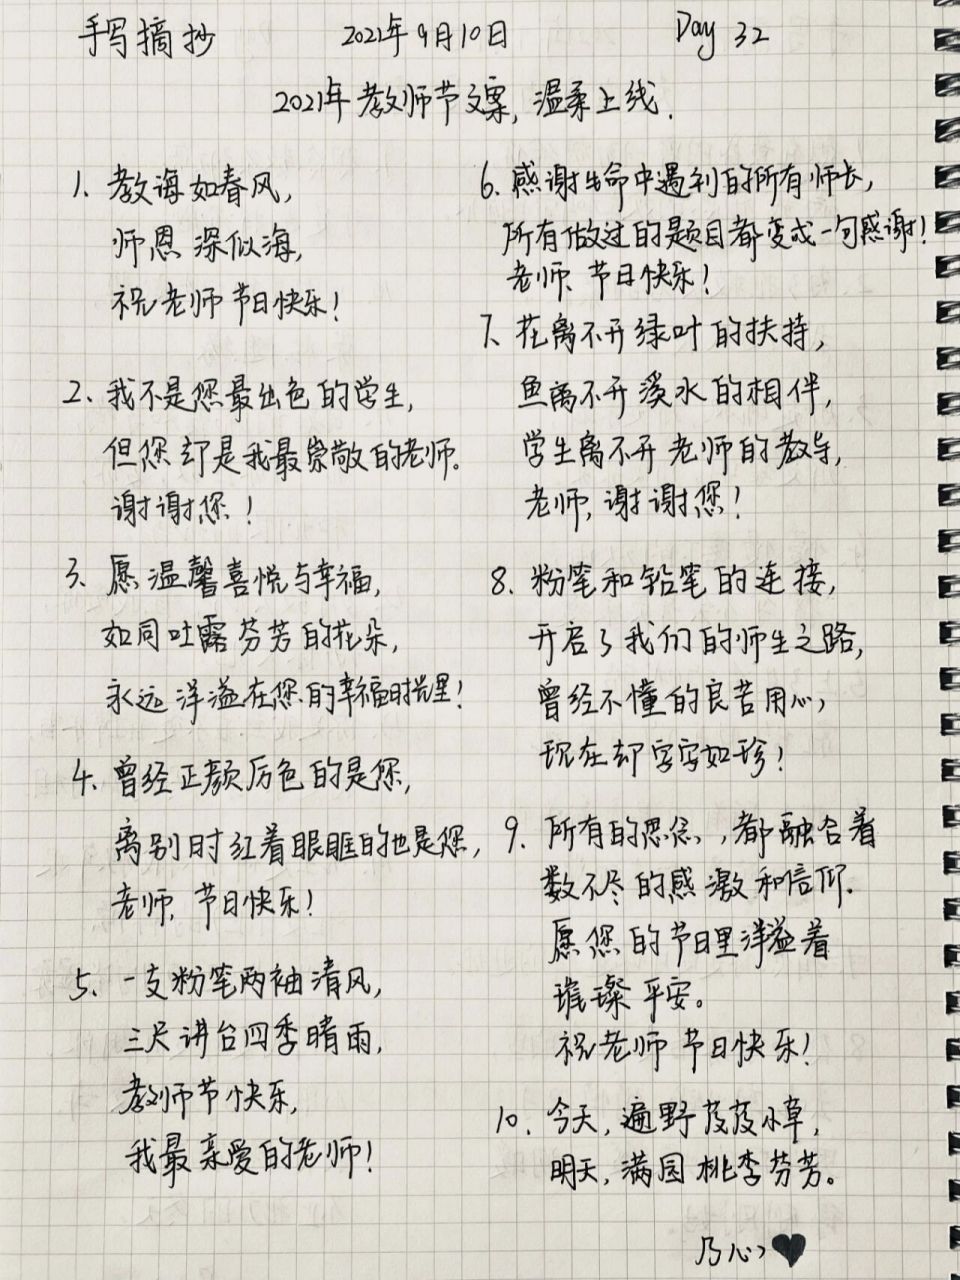 手写摘抄 2021年9月10日 Day 32
2021年教师节文案，温柔上线.
1. 教诲如春风，
师恩深似海，
祝老师节日快乐！
2、我不是您最出色的学生，
但您却是我最崇敬的老师。
谢谢您！
3、愿温馨喜悦与幸福，
如同吐露芬芳的花朵，
永远洋溢在您的幸福时光里！
4、曾经正颜厉色的是您，
离别时红着眼眶的也是您，
老师，节日快乐！
5、一支粉笔两袖清风，
三尺讲台四季晴雨，
教师节快乐，
我最亲爱的老师！
6、感谢生命中遇到的所有师长，
所有做过的题目都变成一句感谢！
老师、节日快乐！
7、花离不开绿叶的扶持，
鱼离不开溪水的相伴，
学生离不开老师的教导，
老师，谢谢您！
8、粉笔和铅笔的连接，
开启了我们的师生之路，
曾经不懂的良苦用心，
现在却字字如珍！
9、所有的思念，都融合着
数不尽的感激和信仰.
愿您的节日里洋溢着
璀璨平安。
祝老师节日快乐！
10、今天，遍野芨芨小草，
明天，满园桃李芬芳。
乃心